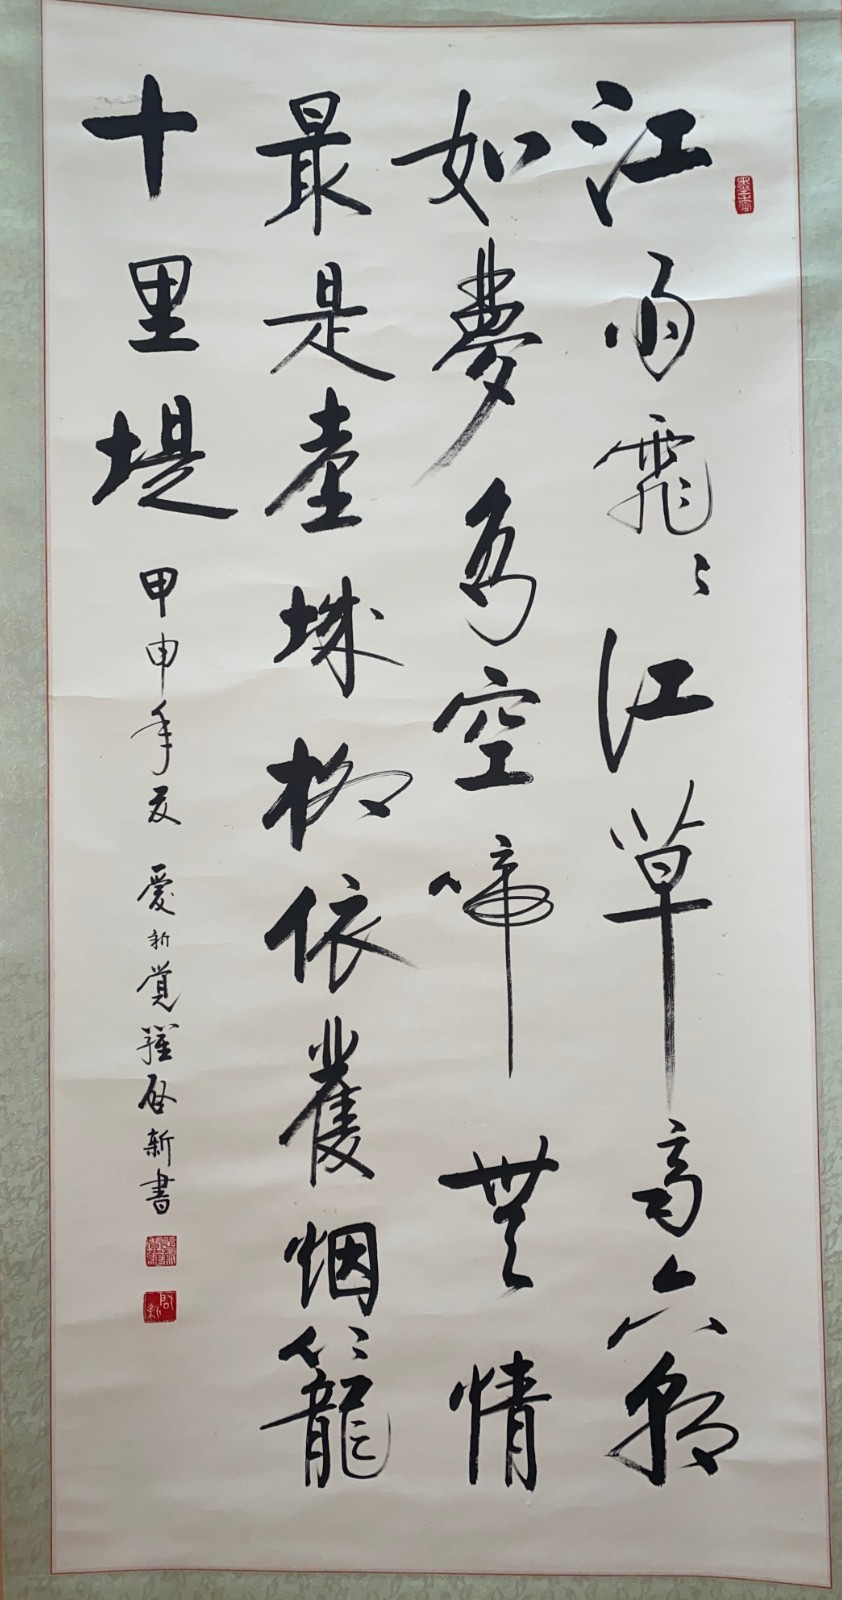 江雨霏〻江草齊六朝
如夢鳥空啼無情
最是臺城柳依舊烟籠
十里堤 甲申年夏 愛新覺羅啟新書